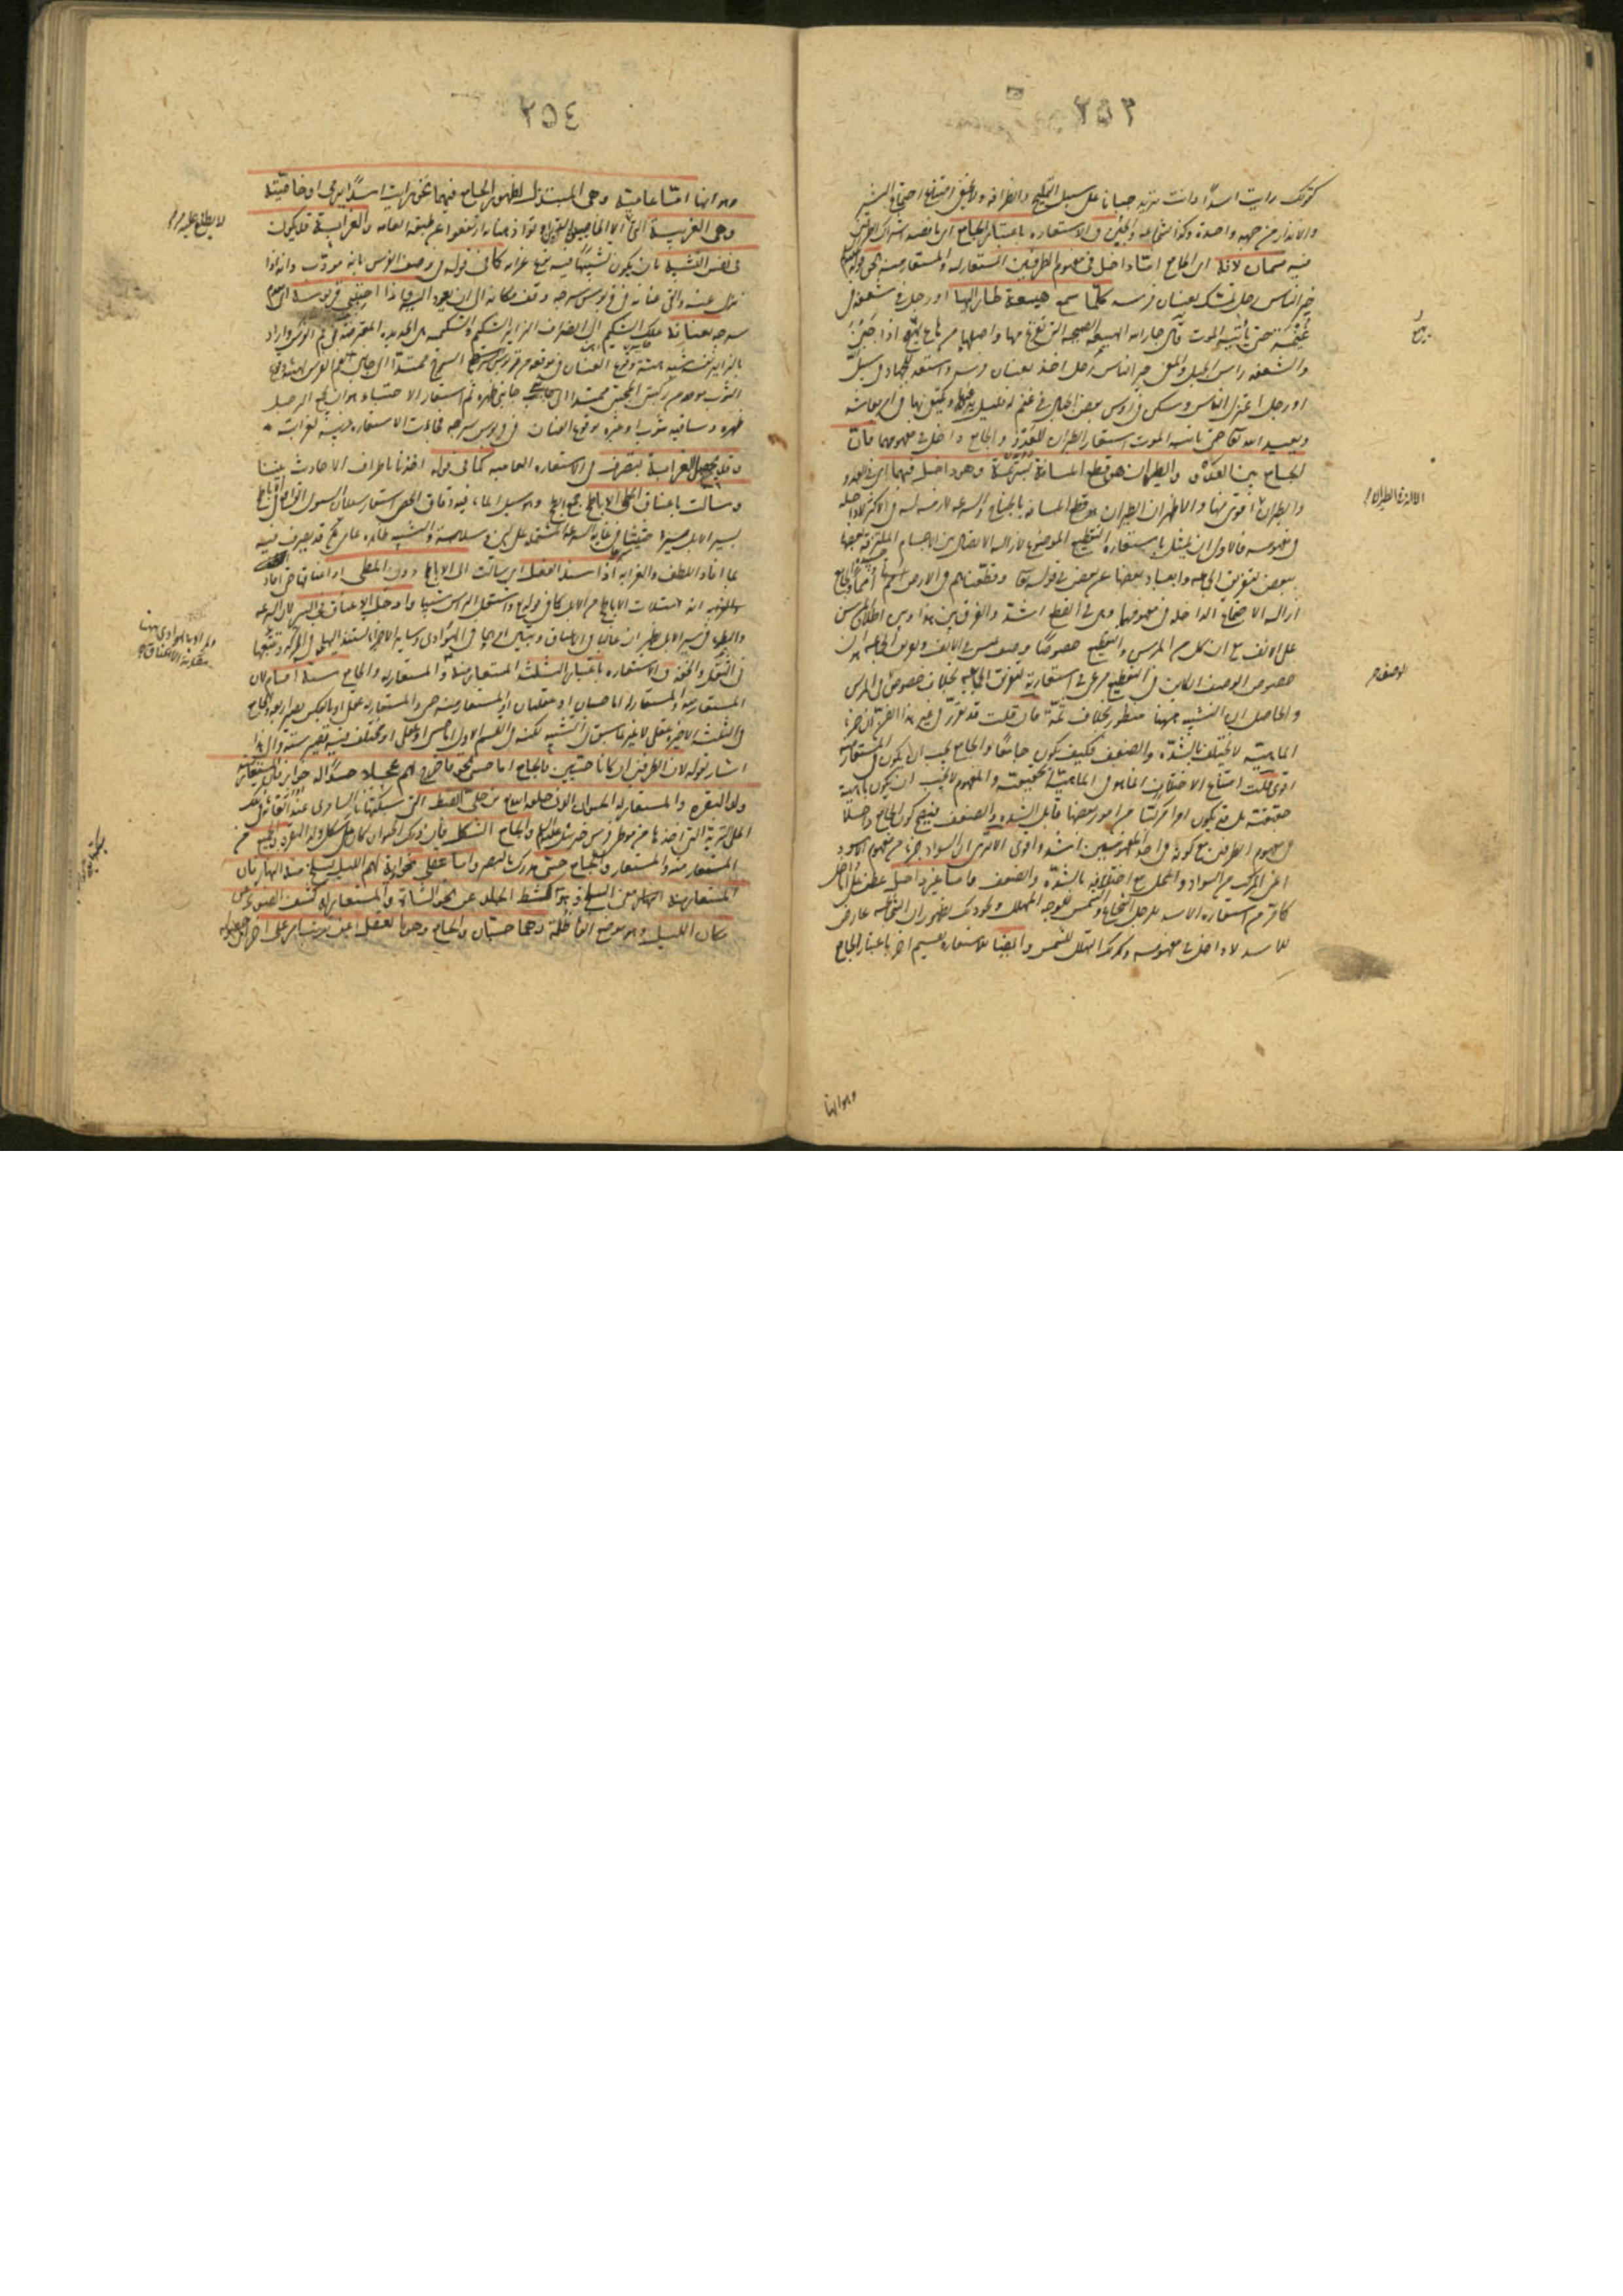 ٢٥٣
كقولك رايت اسدًا وانت تريد جبانا على سبيل التمليح والظرافة ولا يخفى امتناع اجتماع التبشير
والانذار من جهة واحدة وكذا الشجاعة والجبن والاستعارة باعتبار الجامع اى ما قصد اشتراك الطرفين
فيه قسمان لانه اى الجامع اما داخل فى مفهوم الطرفين المستعار له والمستعار منه نحو قوله
خير الناس رجل يمسك بعنان فرسه كلما سمع هيعة طار اليها او رجل فى شعفة فى
غنيمة حتى يأتيه الموت قال جار الله الهيعة الصيحة التى تفزع منها واصلها من هاع يهيع اذا جبن
والشعفة راس الجبل والمعنى خير الناس رجل اخذ بعنان فرسه واستعد للجهاد فى سبيل
او رجل اعتزل الناس وسكن فى رؤس بعض الجبال فى غنم له قليل يرعاها ويكتفى بها فى امر معاشه
ويعبد الله تعالى حتى يأتيه الموت استعار الطيران للعدو والجامع داخل فى مفهومهما فان
الجامع بين العدو والطيران هو قطع المسافة بسرعة وهو داخل فيهما اى فى العدو
والطيران اقوى منها والاظهر ان الطيران هو قطع المسافة بالجناح والسرعة لازمة له فى الاكثر لا داخلة
فى مفهومه فالاولى ان يمثل باستعارة التقطيع الموضوع لازالة الاتصال بين الاجسام الملتزقة بعضها
ببعض لتفريق الجماعة وابعاد بعضها عن بعض فى قوله تعالى وقطعناهم فى الارض امما والجامع
ازالة الاجتماع الداخلة فى مفهومهما وهى فى القطع اشد والفرق بين هذا وبين اطلاق المرسن
على الانف مع ان فى كل من المرسن والتقطيع خصوص وصف ليس فى الانف وتفريق الجماعة هو ان
خصوص الوصف الكائن فى التقطيع مرعى فى استعارته لتفريق الجماعة بخلاف خصوص المرسن
والحاصل ان التشبيه ههنا منظور بخلاف ثمة فان قلت قد تقرر فى غير هذا الفن ان جزء
الماهية لا يختلف بالشدة والضعف فكيف يكون جامعا والجامع يجب ان يكون فى المستعار منه
اقوى قلت امتناع الاختلاف انما هو فى الماهية الحقيقية والمفهوم لا يجب ان يكون ماهية
حقيقية بل قد يكون امرا مركبا من امور بعضها قابل للشدة والضعف فيصح كون الجامع داخلا
فى مفهوم الطرفين مع كونه فى احد المفهومين اشد واقوى الا ترى ان السواد جزء من مفهوم الاسود
اعنى المركب من السواد والمحل مع اختلافه بالشدة والضعف واما غير داخل عطف على اما داخل
كما مر من استعارة الاسد للرجل الشجاع والشمس للوجه المتهلل ونحو ذلك لظهور ان الشجاعة عارض
للاسد لا داخل فى مفهومه وكذا التهلل للشمس وايضا للاستعارة تقسيم اخر باعتبار الجامع
وهو انها
٢٥٤
وهو انها اما عامية وهى المبتذلة لظهور الجامع فيها نحو رايت اسدًا يرمى او خاصية
وهى الغريبة التى
فى نفس الشبه بان يكون تشبيها فيه نوع غرابة كما فى قوله فى وصف الفرس بانه مؤدب وانه اذا
نزل عنه والقى عنانه فى قربوس سرجه وقف مكانه الى ان يعود اليه واذا احتبى قربوسه اى مقدم
سرجه بعنانه علك الشكيم الى انصراف الزائر الشكيم والشكيمة هى الحديدة المعترضة فى فم الفرس واراد
بالزائر نفسه شبه هيئة وقوع العنان فى موقعه من قربوس السرج ممتدا الى جانبى فم الفرس بهيئة وقوع
الثوب موقعه من ركبتى المحتبى ممتدا الى جانبى ظهره ثم استعار الاحتباء وهو ان يجمع الرجل
ظهره وساقيه بثوب او غيره لوقوع العنان فى قربوس السرج فجاءت الاستعارة غريبة لغرابة
وقد تحصل الغرابة بتصرف فى الاستعارة العامية كما فى قوله اخذنا باطراف الاحاديث بيننا
وسالت باعناق المطى الاباطح جمع ابطح وهو مسيل الماء فيه دقاق الحصى استعار سيلان السيول الواقعة فى الاباطح
لسير الابل سيرا حثيثا فى غاية السرعة المشتملة على لين وسلاسة والشبه ظاهر عامى لكن قد تصرف فيه
بما افاد اللطف والغرابة اذ اسند الفعل اى سالت الى الاباطح دون المطى او اعناقها حتى افاد
انه امتلأت الاباطح من الابل كما فى قوله واشتعل الراس شيبا وادخل الاعناق فى السير لان السرعة
والبطوء فى سير الابل يظهران غالبا فى الاعناق ويتبين امرهما فى الهوادى وسائر الاجزاء تستند اليها فى الحركة وتتبعها
فى الثقل والخفة والاستعارة باعتبار الثلثة المستعار منه والمستعار له والجامع ستة اقسام لان
المستعار منه والمستعار له اما حسيان او عقليان او المستعار منه حسى والمستعار له عقلى او بالعكس تصير اربعة والجامع
فى الثلثة الاخيرة عقلى لا غير لما سبق فى التشبيه لكنه فى القسم الاول اما حسى او عقلى او مختلف فتصير ستة والى هذا
اشار بقوله لان الطرفين ان كانا حسيين فالجامع اما حسى نحو فاخرج لهم عجلا جسدا له خوار فان المستعار منه
ولد البقرة والمستعار له الحيوان الذى خلقه الله تعالى من حلى القبط التى سبكتها نار السامرى عند القائه فى تلك
الحلى التربة التى اخذها من موطئ فرس جبرئيل عليه السلام والجامع الشكل فان ذلك الحيوان كان على شكل ولد البقرة والجميع من
المستعار منه والمستعار له والجامع حسى مدرك بالبصر واما عقلى نحو واية لهم الليل نسلخ منه النهار فان
المستعار منه معنى السلخ وهو كشط الجلد عن نحو الشاة والمستعار له كشف الضوء عن
مكان الليل وهو موضع القاء ظله وهما حسيان والجامع ما يعقل من ترتب امر على اخر